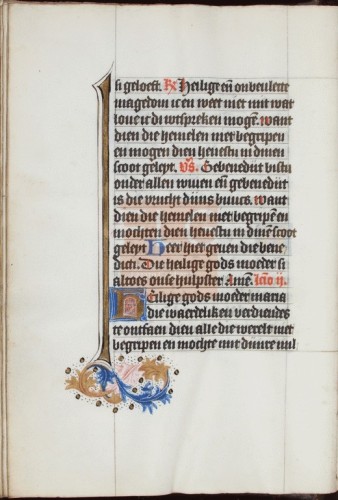 si geloeft. R Heilige en̄ onbeulect
magedom ic en weet niet mit wat
loue ic di wtspreken mogē. want
dien die hemelen niet begripen
en mogen dien heuestu in dinen
scoot geleyt. vs. Gebenedijt bistu
onder allen wiuen en̄ gebenedijt
is die vrucht dijns buucs. want
dien die hemelen niet begripen en
mochten dien heuestu in dinē scoot
geleyt Heer hier geuen die bene
dictē. Die heilige gods moeder si
altoes onse hulpster Amē. lcio ij.
Heilige gods moeder maria
die waerdeliken verdiendes
te ontfaen dien alle die werelt niet
begripen en mochte mit dinre uul